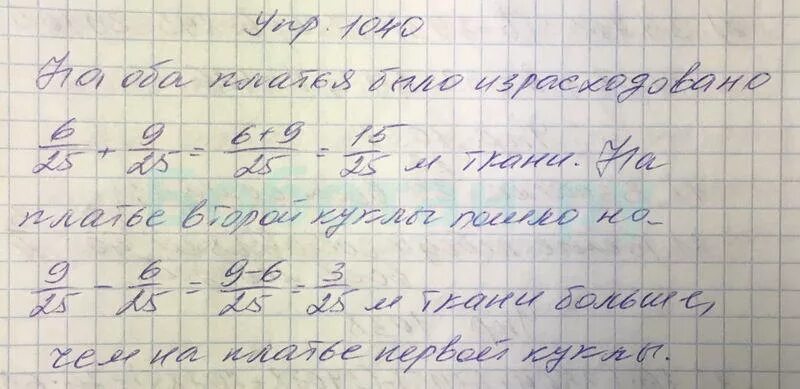 Упр. 1040
На оба платья было израсходовано
6/25 + 9/25 = 6+9/25 = 15/25 м ткани. На
платье второй куклы пошло на
9/25 - 6/25 = 9-6/25 = 3/25 м ткани больше,
чем на платье первой куклы.